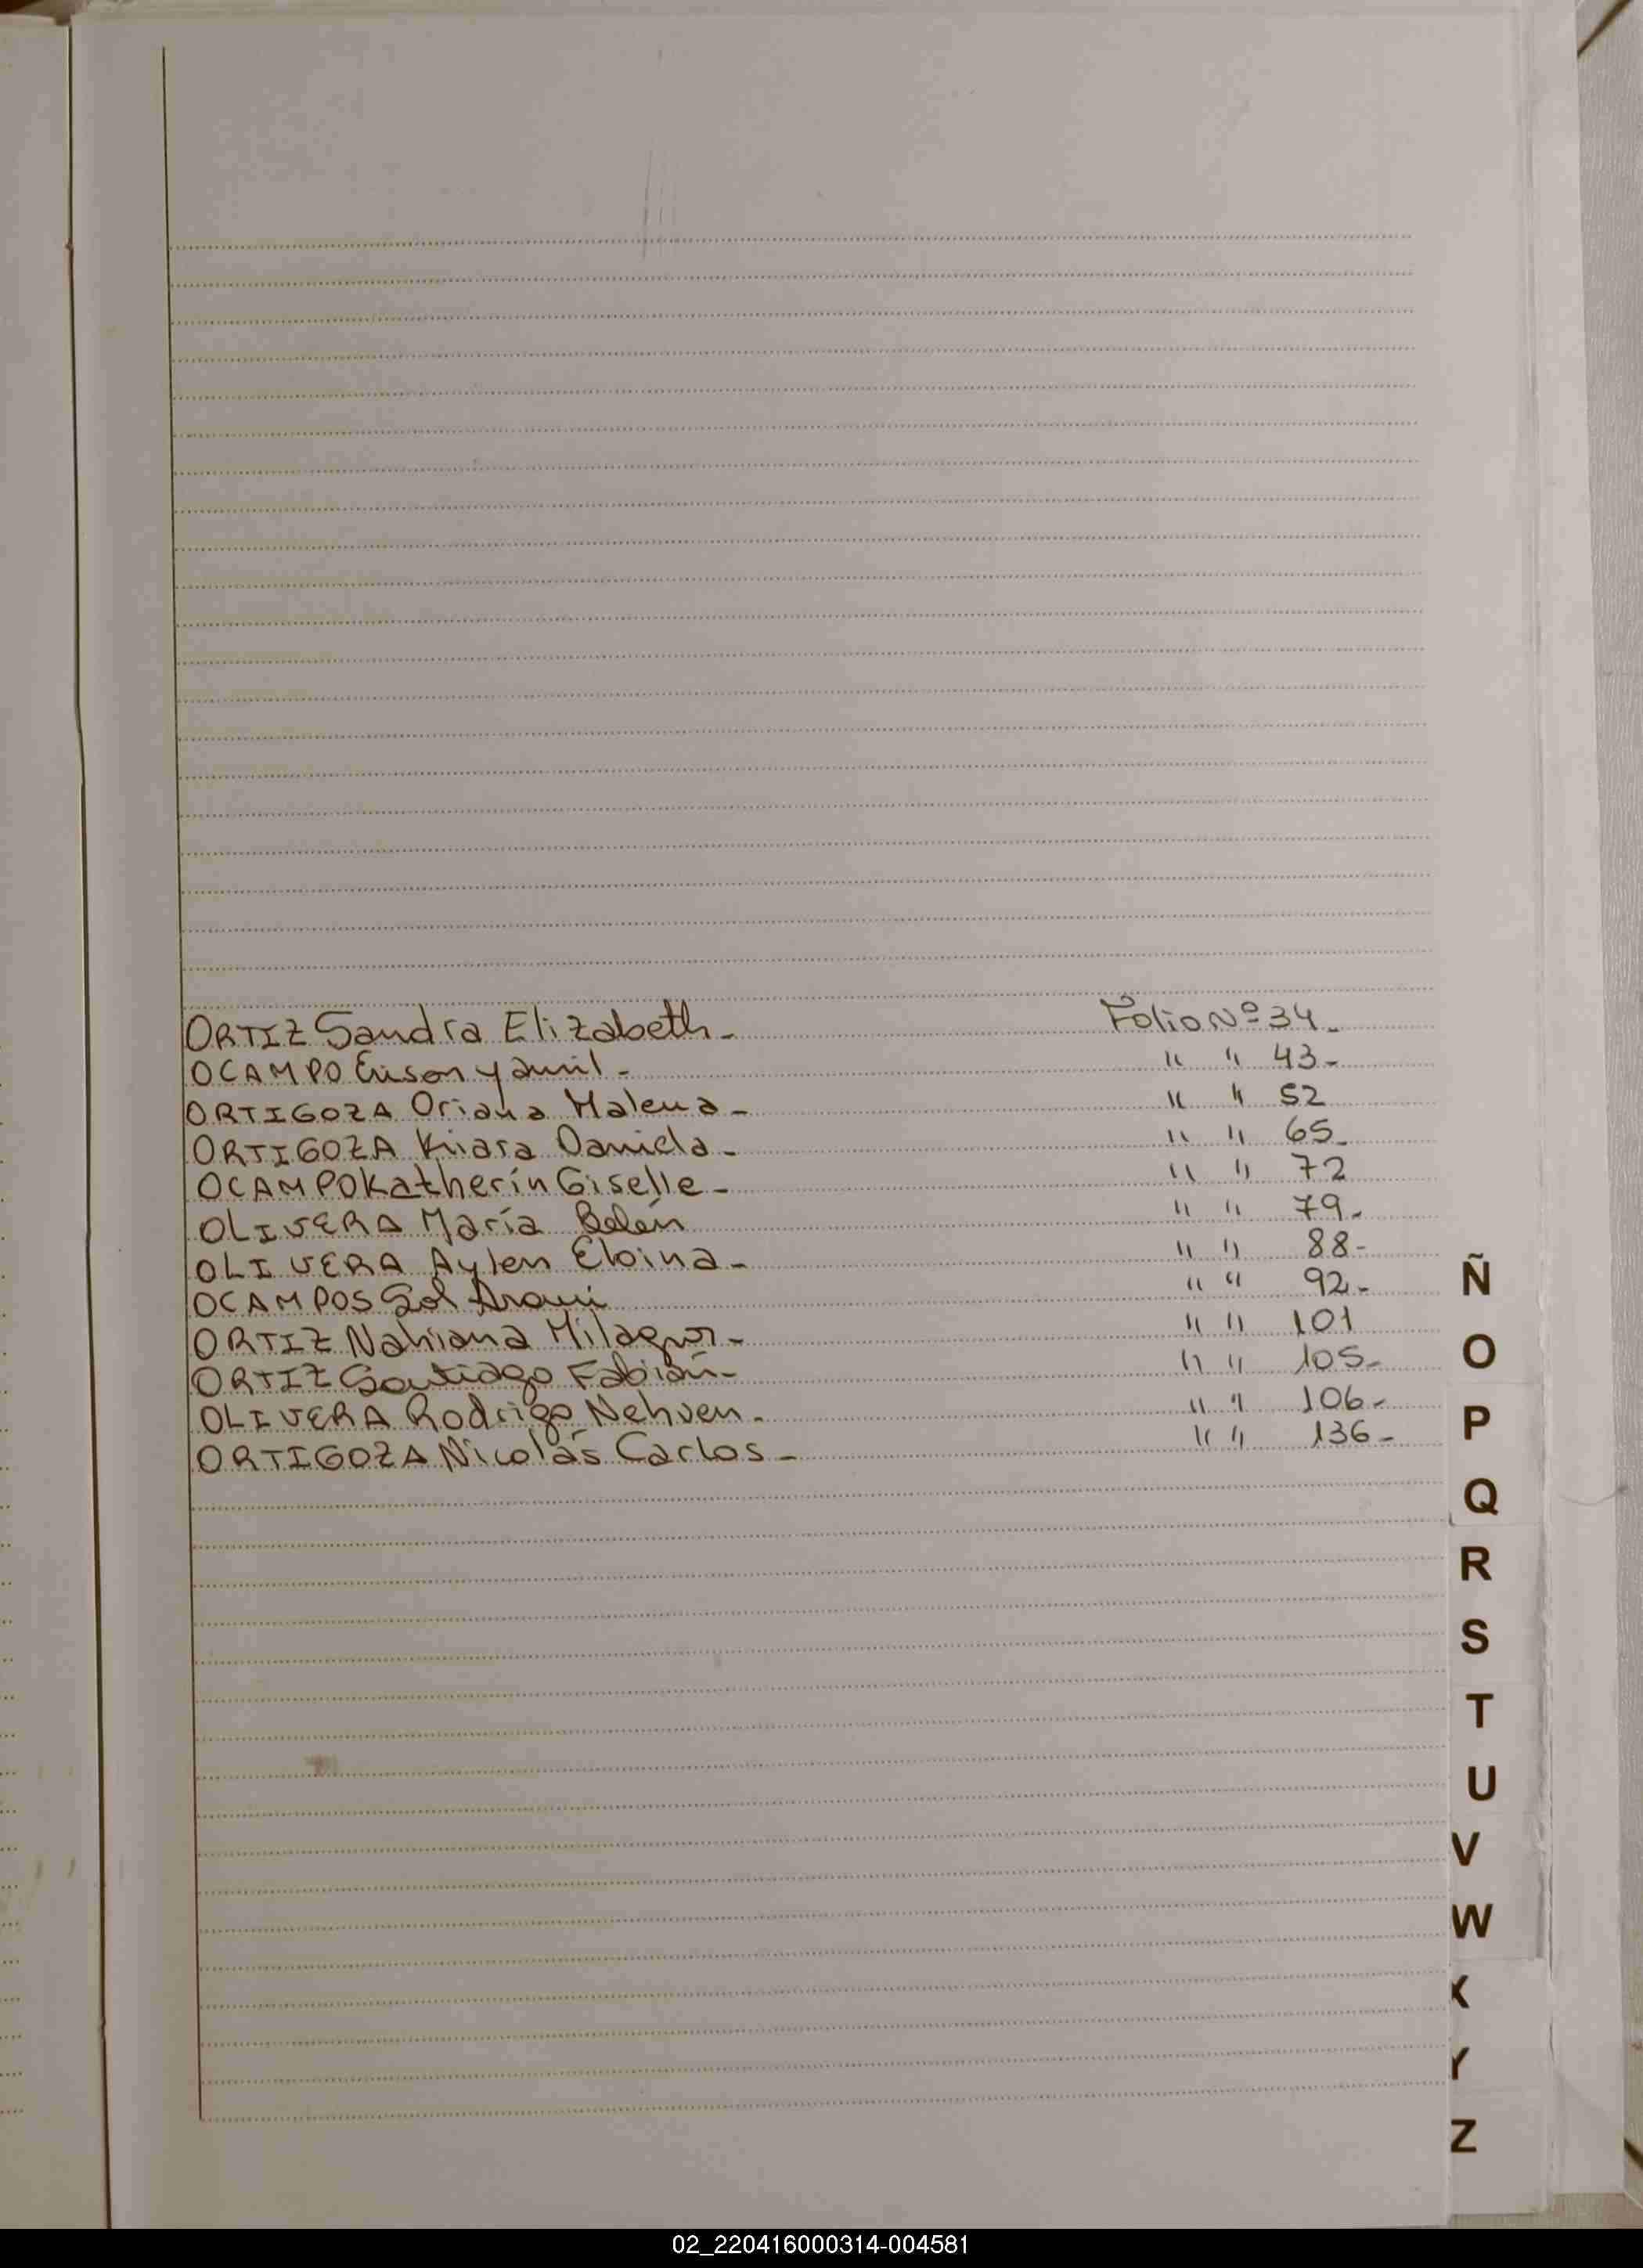 ORTIZ Sandra Elizabeth - Folio Nº 34 -
OCAMPO Erison Yamil - " " 43 -
ORTIGOZA Oriana Malena - " " 52
ORTIGOZA Kiara Daniela - " " 65 -
OCAMPO Katherin Giselle - " " 72
OLIVERA María Belén " " 79 -
OLIVERA Aylen Eloina - " " 88 -
OCAMPOS Sol " " 92 -
ORTIZ Nahiana Milagros - " " 101
ORTIZ Santiago Fabián - " " 105 -
OLIVERA Rodrigo Nehuen - " " 106 -
ORTIGOZA Nicolás Carlos - " " 136 -
Ñ
O
P
Q
R
S
T
U
V
W
X
Y
Z
02_220416000314-004581